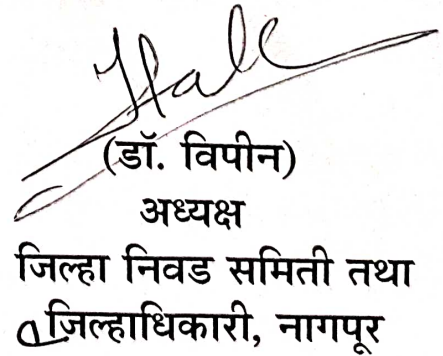 (डॉ. विपीन)
अध्यक्ष
जिल्हा निवड समिती तथा
जिल्हाधिकारी, नागपूर